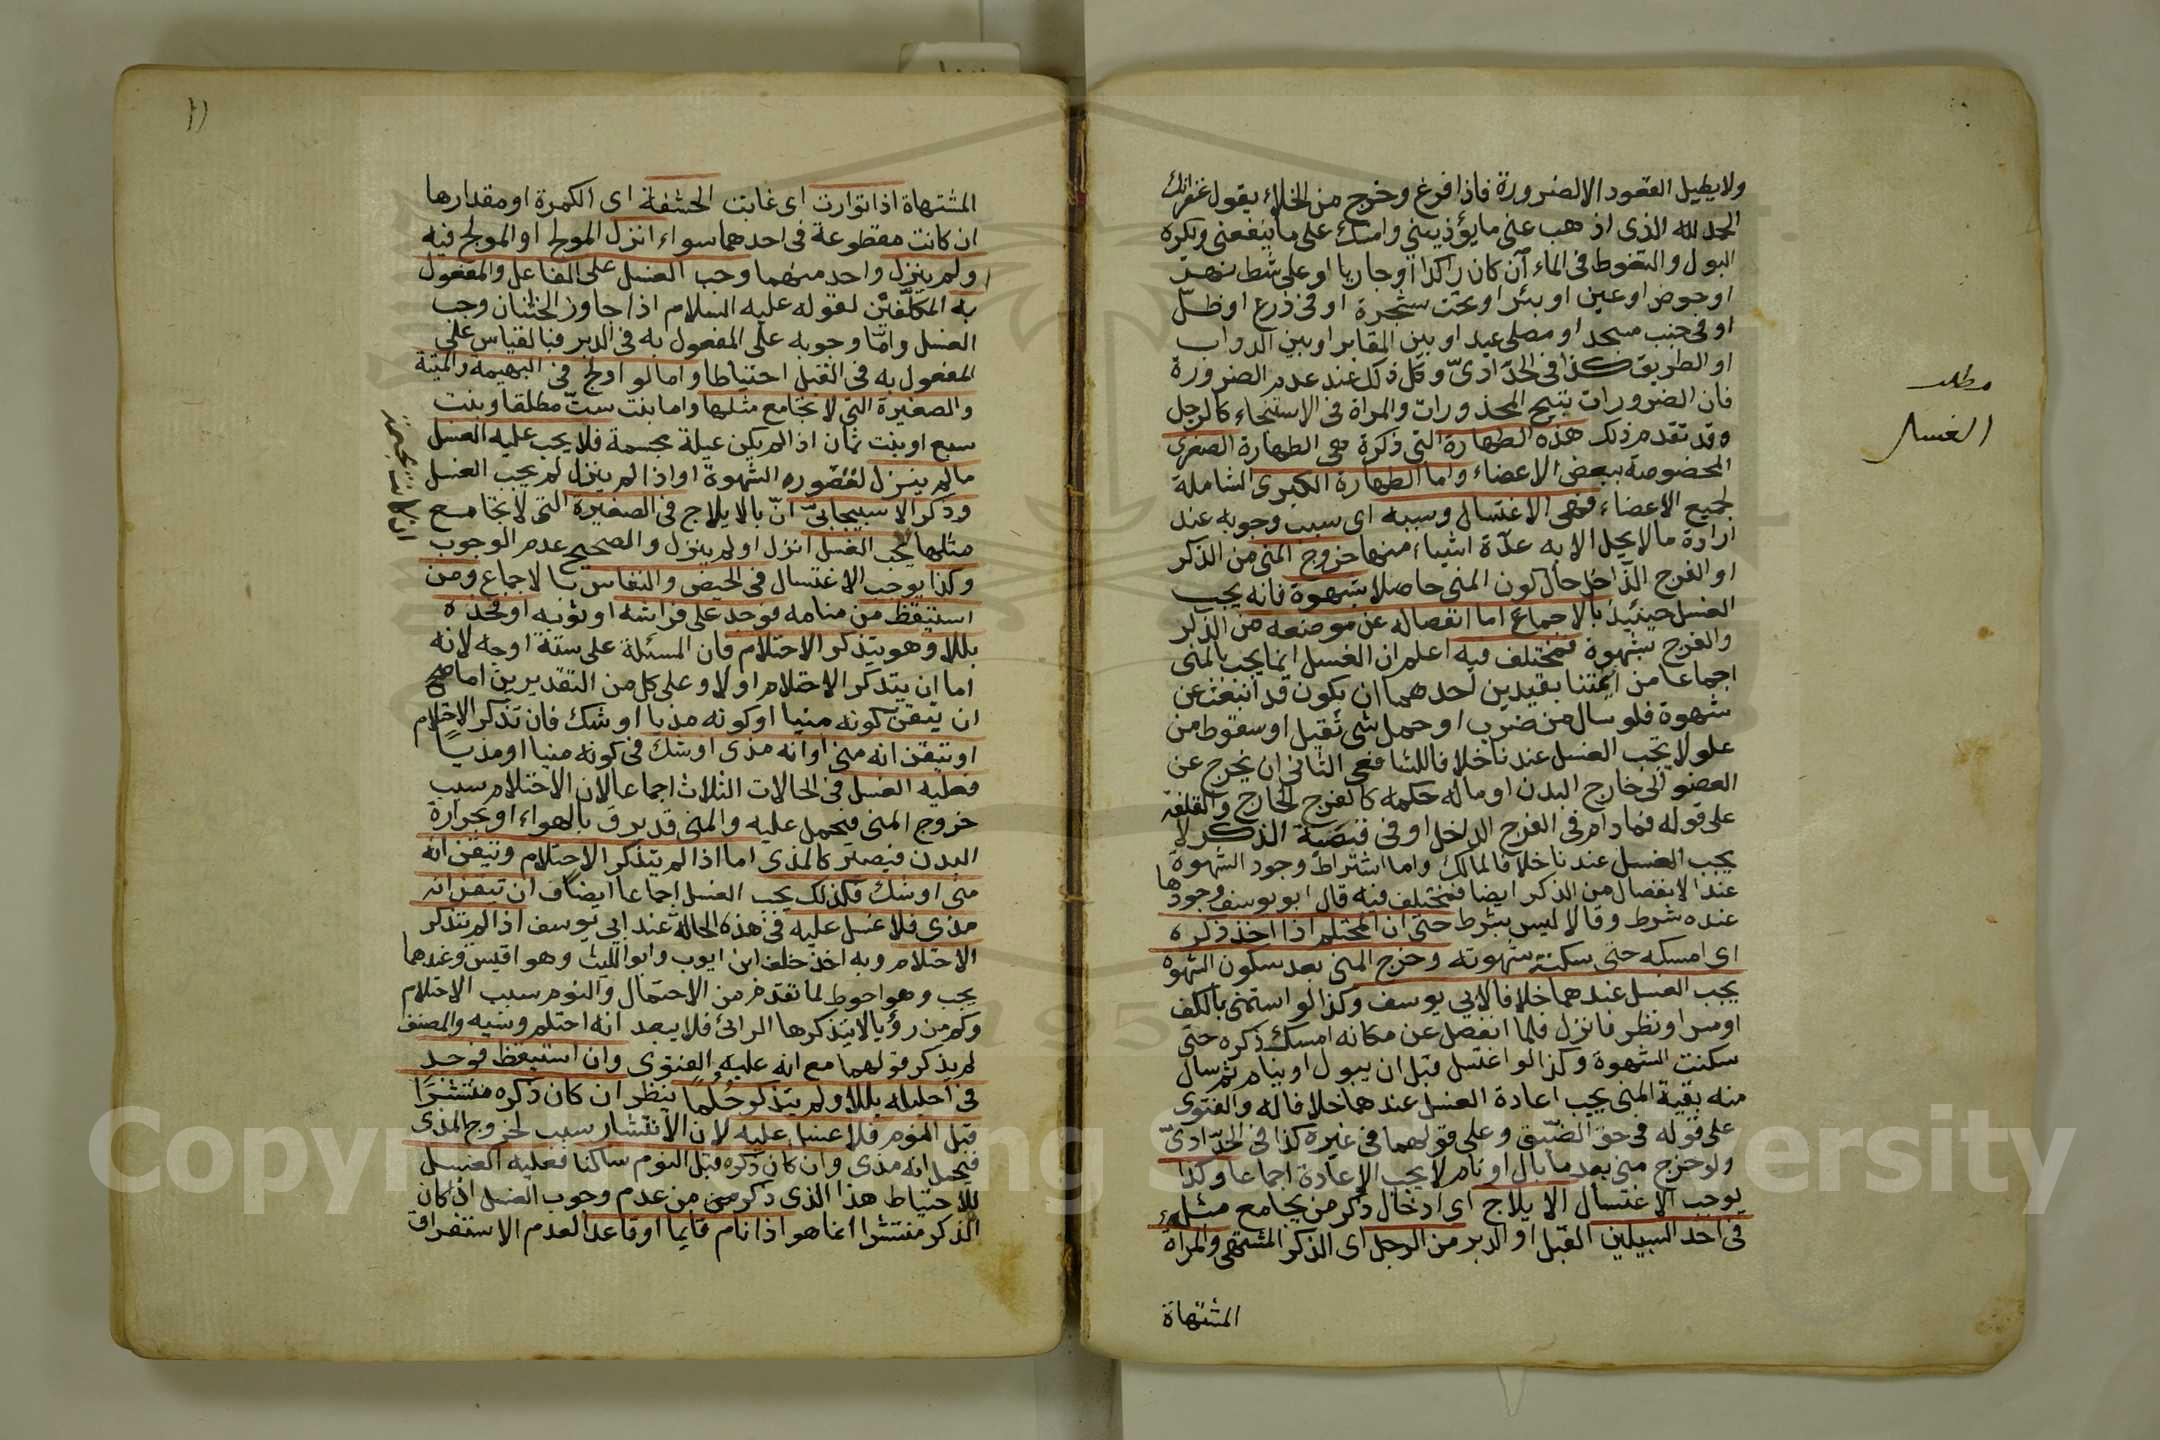 ولا يطيل القعود الا لضرورة فاذا فرغ وخرج من الخلاء يقول غفرانك
الحمد لله الذى اذهب عنى ما يؤذينى وامسك على ما ينفعنى ويكره
البول والتغوط فى الماء ان كان راكدا او جاريا او على شط نهر
او حوض او عين او بئر او تحت شجرة او فى ذرع او ظل
او فى جنب مسجد او مصلى عيد او بين المقابر او بين الدواب
او الطريق كذا فى الحدادى وكل ذلك عند عدم الضرورة
فان الضرورات تبيح المحذورات والمراة فى الاستنجاء كالرجل
وقد تقدم ذلك هذه الطهارة التى ذكرة هى الطهارة الصغرى
المخصوصة ببعض الاعضاء واما الطهارة الكبرى الشاملة
لجميع الاعضاء فهى الاغتسال وسببه اى سبب وجوبه عند
ارادة ما لا يحل الا به عدة اشياء منها خروج المنى من الذكر
او الفرج الداخل حال كون المنى حاصلا بشهوة فانه يجب
الغسل حينئذ بالاجماع اما انفصاله عن موضعه من الذكر
والفرج بشهوة فمختلف فيه اعلم ان الغسل انما يجب بالمنى
اجماعا من ائمتنا بقيدين احدهما ان يكون قد انبعث عن
شهوة فلو سال من ضرب او حمل شى ثقيل او سقوط من
علو لا يجب الغسل عندنا خلافا للشافعى الثانى ان يخرج عن
العضو الى خارج البدن او ماله حكمه كالفرج الخارج والقلفة
على قوله فما دام فى الفرج الداخل او فى قصبة الذكر لا
يجب الغسل عندنا خلافا لمالك واما اشتراط وجود الشهوة
عند الانفصال من الذكر ايضا فمختلف فيه قال ابو يوسف وجودها
عنده شرط وقالا ليس بشرط حتى ان المحتلم اذا اخذ ذكره
اى امسكه حتى سكنت شهوته وخرج المنى بعد سكون الشهوة
يجب الغسل عندهما خلافا لابى يوسف وكذا لو استمنى بالكف
او مس او نظر فانزل فلما انفصل عن مكانه امسك ذكره حتى
سكنت الشهوة وكذا لو اغتسل قبل ان يبول او ينام ثم سال
منه بقية المنى يجب اعادة الغسل عندهما خلافا له والفتوى
على قوله فى حق الضيف وعلى قولهما فى غيره كذا فى الحدادى
ولو خرج منى بعد ما بال او نام لا يجب الاعادة اجماعا وكذا
يوجب الاغتسال الايلاج اى ادخال ذكر من يجامع مثله
فى احد السبيلين القبل او الدبر من الرجل اى الذكر المشتهى والمراة
المشتهاة
مطلب
الغسل
المشتهاة اذا توارت اى غابت الحشفة اى الكمرة او مقدارها
ان كانت مقطوعة فى احدهما سواء انزل المولج او المولج فيه
ولم ينزل واحد منهما وجب الغسل على الفاعل والمفعول
به المكلفين لقوله عليه السلام اذا جاوز الختنان وجب
الغسل واما وجوبه على المفعول به فى الدبر فبالقياس على
المفعول به فى القبل احتياطا واما لو اولج فى البهيمة والميتة
والصغيرة التى لا تجامع مثلها واما بنت ست مطلقا وبنت
سبع او بنت ثمان اذا لم يكن عبلة مجسمة فلا يجب عليه الغسل
ما لم ينزل لقصور الشهوة او اذا لم ينزل لم يجب الغسل
وذكر الاسبيجابى ان بالايلاج فى الصغيرة التى لا تجامع
مثلها يجب الغسل انزل او لم ينزل والصحيح عدم الوجوب
وكذا يوجب الاغتسال فى الحيض والنفاس بالاجماع ومن
استيقظ من منامه فوجد على فراشه او ثوبه او فخذه
بللا وهو يتذكر الاحتلام فان المسئلة على ستة اوجه لانه
اما ان يتذكر الاحتلام او لا وعلى كل من التقديرين اما
ان يتيقن كونه منيا او كونه مذيا او شك فان تذكر الاحتلام
او تيقن انه منى او انه مذى او شك فى كونه منيا او مذيا
فعليه الغسل فى الحالات الثلاث اجماعا لان الاحتلام سبب
خروج المنى فيحمل عليه والمنى قد يرق بالهواء او بحرارة
البدن فيصير كالمذى اما اذا لم يتذكر الاحتلام وتيقن انه
منى او شك فكذلك يجب الغسل اجماعا ايضا وان تيقن انه
مذى فلا غسل عليه فى هذه الحالة عند ابى يوسف اذا لم يتذكر
الاحتلام وبه اخذ خلف ابن ايوب وابو الليث وهو اقيس وعندهما
يجب وهو احوط لما تقدم من الاحتمال والنوم سبب الاحتلام
وكم من رؤيا لا يتذكرها الرائى فلا يبعد انه احتلم ونسيه والمصنف
لم يذكر قولهما مع انه عليه الفتوى وان استيقظ فوجد
فى احليله بللا ولم يتذكر حلما ينظر ان كان ذكره منتشرا
قبل النوم فلا غسل عليه لان الانتشار سبب لخروج المذى
فيحمل انه مذى وان كان ذكره قبل النوم ساكنا فعليه الغسل
للاحتياط هذا الذى ذكر من عدم وجوب الغسل اذا كان
الذكر منتشرا انما هو اذا نام قايما او قاعدا لعدم الاستغراق
Copyright © King Saud University
1957